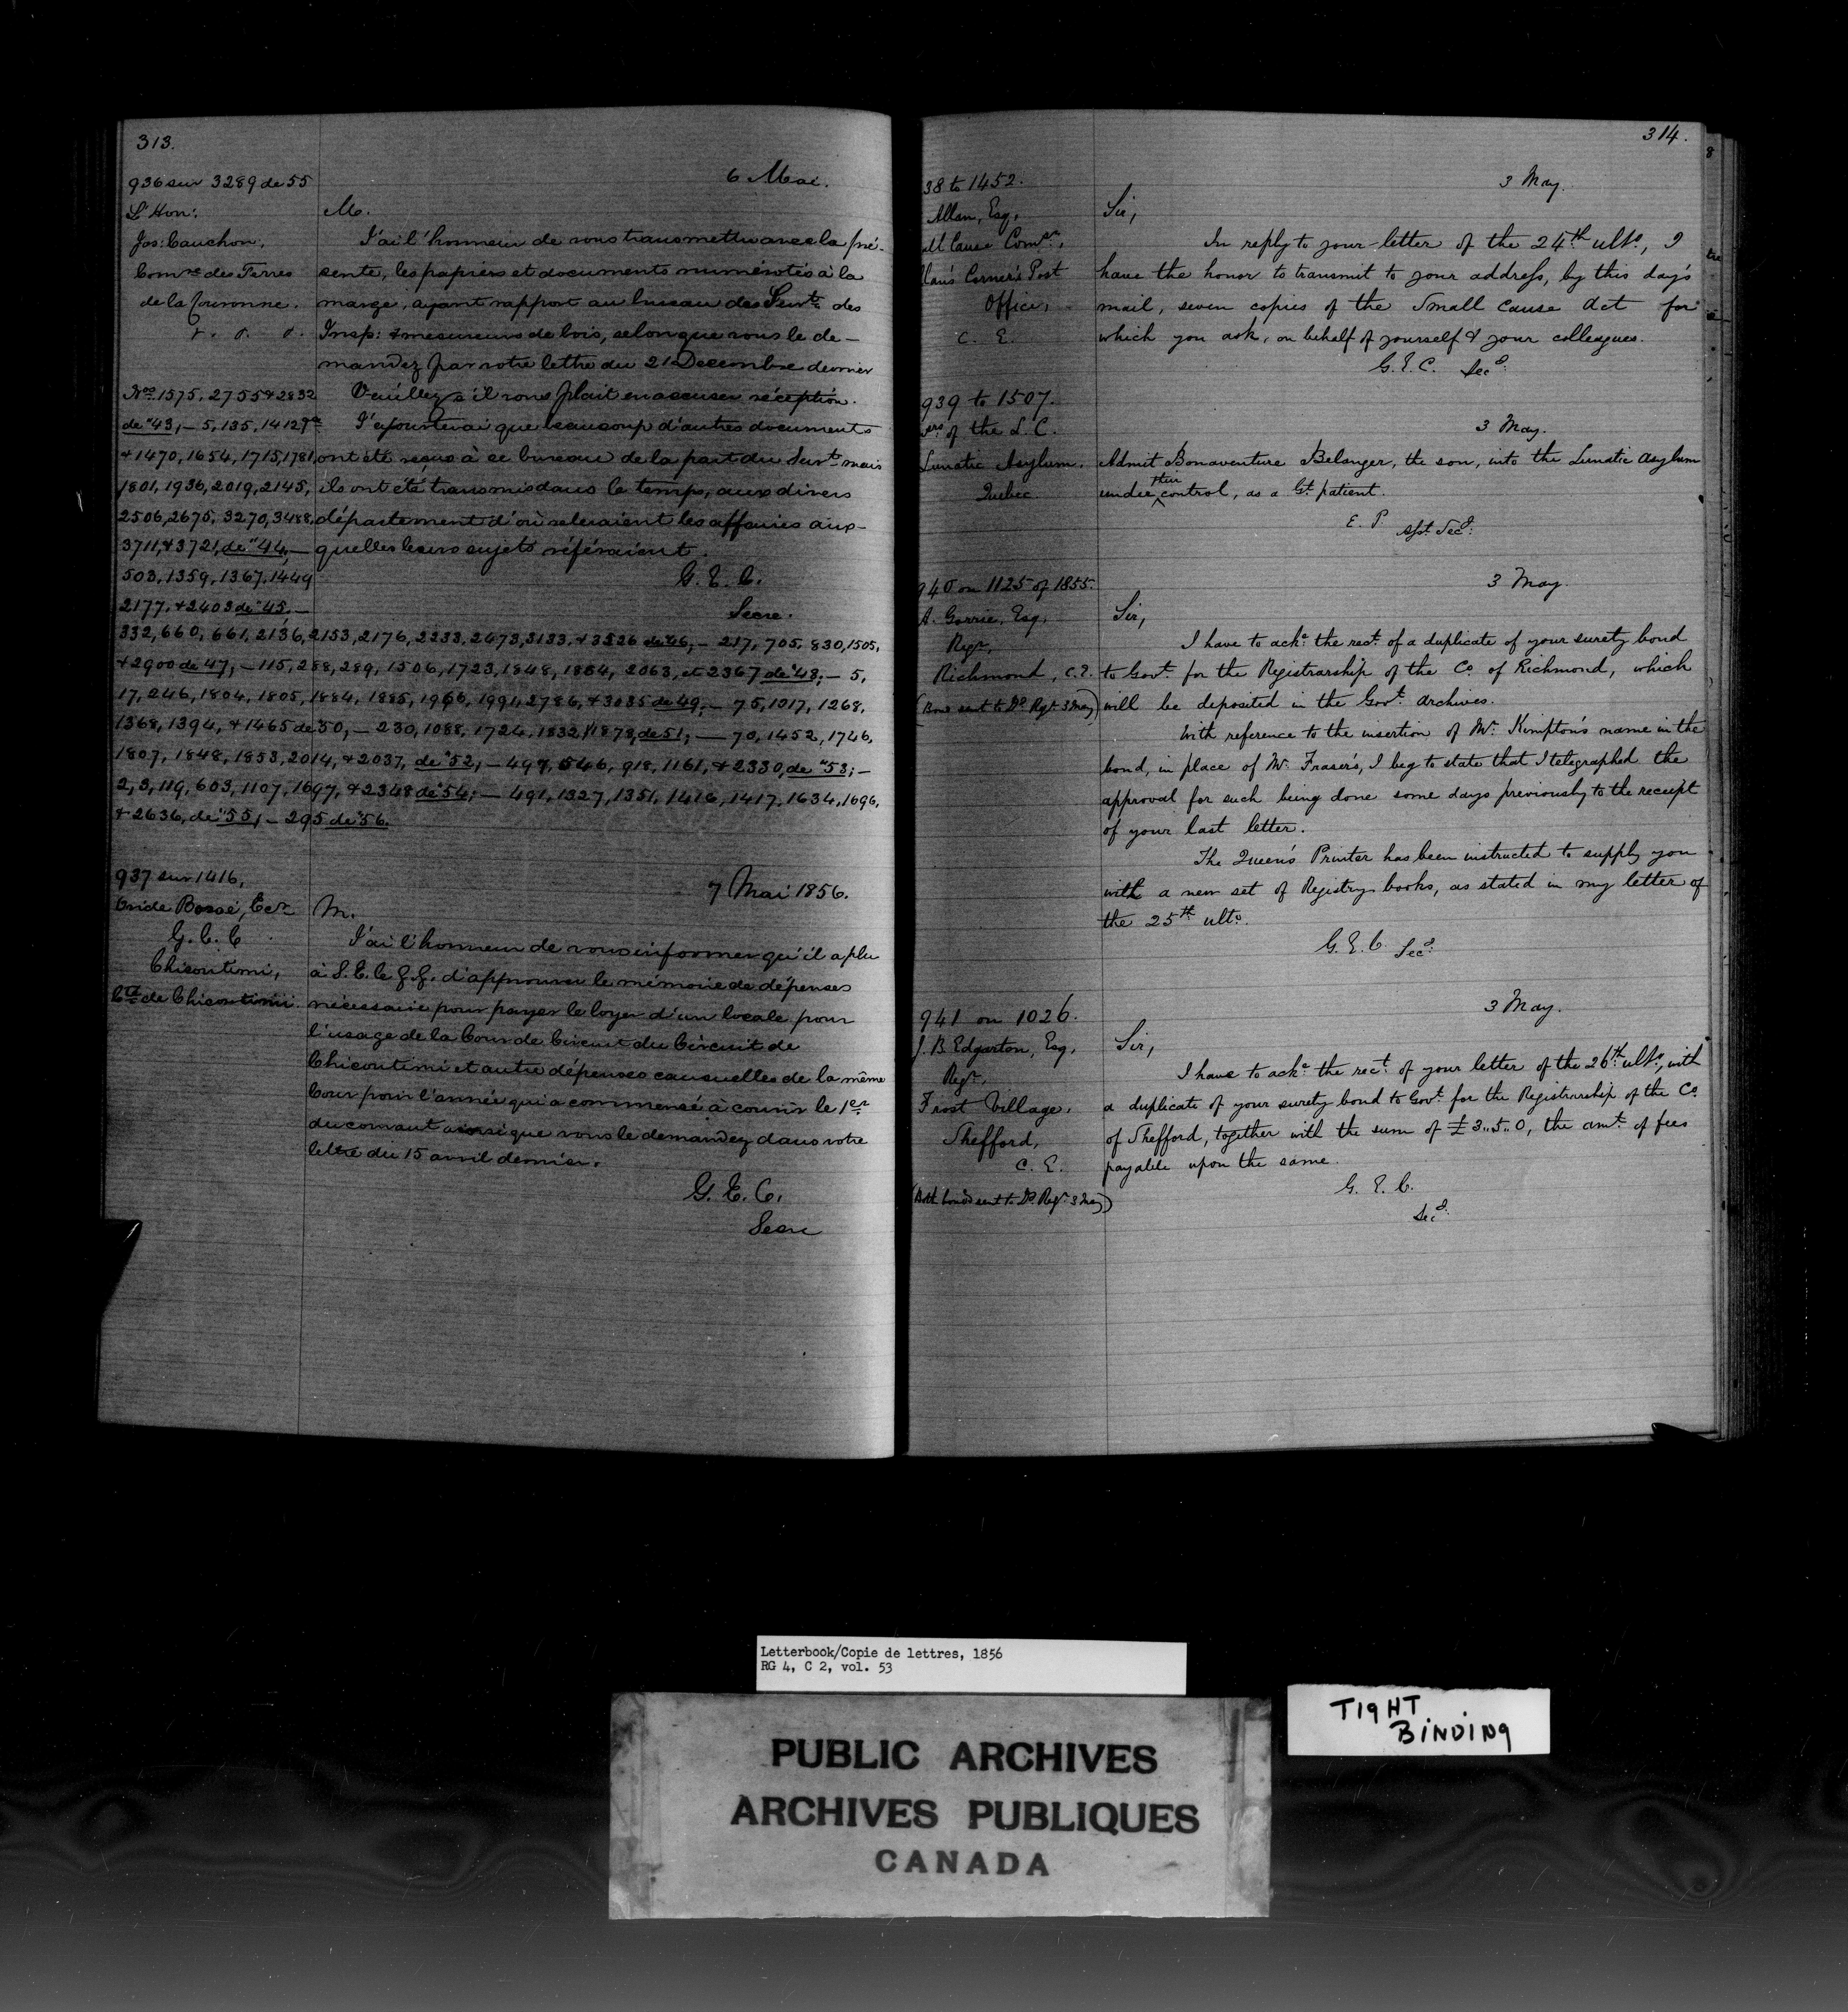 313.
936 sur 3289 de 55
L'Hon:
Jos: Cauchon,
Comre des Terres
de la Couronne.
6 Mai.
M.
J'ai l'honneur de vous transmettre avec la pré-
sente, les papiers et documents numérotés à la
marge, ayant rapport au bureau des Surts des
Insp: & mesureurs de bois, selon que vous le de-
mandez par votre lettre du 21 Decembre dernier
Veuillez s'il vous plait en accuser réception.
J'ajouterai que beaucoup d'autres documents
ont été reçus à ce bureau de la part du Surt mais
ils ont été transmis dans le temps, aux divers
département d'où relevaient les affaires aux-
quelles leurs sujets référaient.
G. E. C.
Secre.
Nos 1575, 2755 & 2832
de "43, – 5, 135, 1412
& 1470, 1654, 1715, 1781,
1801, 1936, 2019, 2145,
2506, 2675, 3270, 3488,
3711, & 3721, de "44, –
503, 1359, 1367, 1449
2177, & 2403 de "45, –
332, 660, 661, 2136, 2153, 2176, 2233, 2473, 3133, & 3526 de "46, – 217, 705, 830, 1505,
& 2900 de 47, – 115, 288, 289, 1506, 1723, 1848, 1864, 2063, et 2367 de "48, – 5,
17, 246, 1804, 1805, 1884, 1885, 1960, 1991, 2786, & 3035 de 49, – 75, 1017, 1268,
1368, 1394, & 1465 de "50, – 230, 1088, 1724, 1832, 1873, de 51, – 70, 1452, 1746,
1807, 1848, 1853, 2014, & 2037, de "52, – 497, 546, 918, 1161, & 2330, de "53; –
2, 3, 119, 603, 1107, 1697, & 2348 de "54; – 491, 1327, 1351, 1416, 1417, 1634, 1696,
& 2636, de "55, – 295 de "56.
937 sur 1416,
Ovide Bossé, Ecr
G. C. C
Chicoutimi,
Cté de Chicoutimi.
7 Mai 1856.
M.
J'ai l'honneur de vous informer qu'il a plu
à S. E. le G. G. d'approuver le mémoire de dépenses
nécessaire pour payer le loyer d'un locale pour
l'usage de la Cour de Circuit du Circuit de
Chicoutimi et autre dépenses causuelles de la même
Cour pour l'année qui a commensé à courir le 1er
du courant ainsi que vous le demandez dans votre
lettre du 15 avril dernier.
G. E. C.
Secre
314.
38 to 1452.
Allan, Esq,
all Cause Comr,
llan's Corner's Post
Office,
C. E.
3 May.
Sir,
In reply to your letter of the 24th ulto, I
have the honor to transmit to your address, by this day's
mail, seven copies of the Small Cause Act for
which you ask, on behalf of yourself & your colleagues.
G. E. C. Secy.
939 to 1507.
of the L. C.
Lunatic Asylum,
Quebec.
3 May.
Admit Bonaventure Belanger, the son, into the Lunatic Asylum
under their control, as a Gt. patient.
E. P. Asst. Secy.
940 on 1125 of 1855.
A. Gorrie, Esq,
Regr,
Richmond, C. E.
(Bond sent to Dy Regr 3 May)
3 May.
Sir,
I have to acke the rect. of a duplicate of your surety bond
to Govt. for the Registrarship of the Co. of Richmond, which
will be deposited in the Govt. Archives.
With reference to the insertion of Mr. Kimpton's name in the
bond, in place of Mr. Fraser's, I beg to state that I telegraphed the
approval for such being done some days previously to the receipt
of your last letter.
The Queen's Printer has been instructed to supply you
with a new set of Registry books, as stated in my letter of
the 25th ulto.
G. E. C. Secy.
941 on 1026.
J. B. Edgarton, Esq,
Regr,
Frost Village,
Shefford,
C. E.
(Both bonds sent to Dy Regr 3 May)
3 May.
Sir,
I have to acke. the rect. of your letter of the 26th ulto, with
a duplicate of your surety bond to Govt. for the Registrarship of the Co.
of Shefford, together with the sum of £3..5..0, the amt. of fees
payable upon the same.
G. E. C.
Secy.
Letterbook/Copie de lettres, 1856
RG 4, C 2, vol. 53
TIGHT
BINDING
PUBLIC ARCHIVES
ARCHIVES PUBLIQUES
CANADA